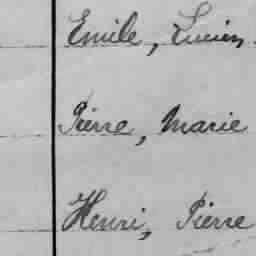 Emile, Lucien.
Pierre, Marie
Henri, Pierre